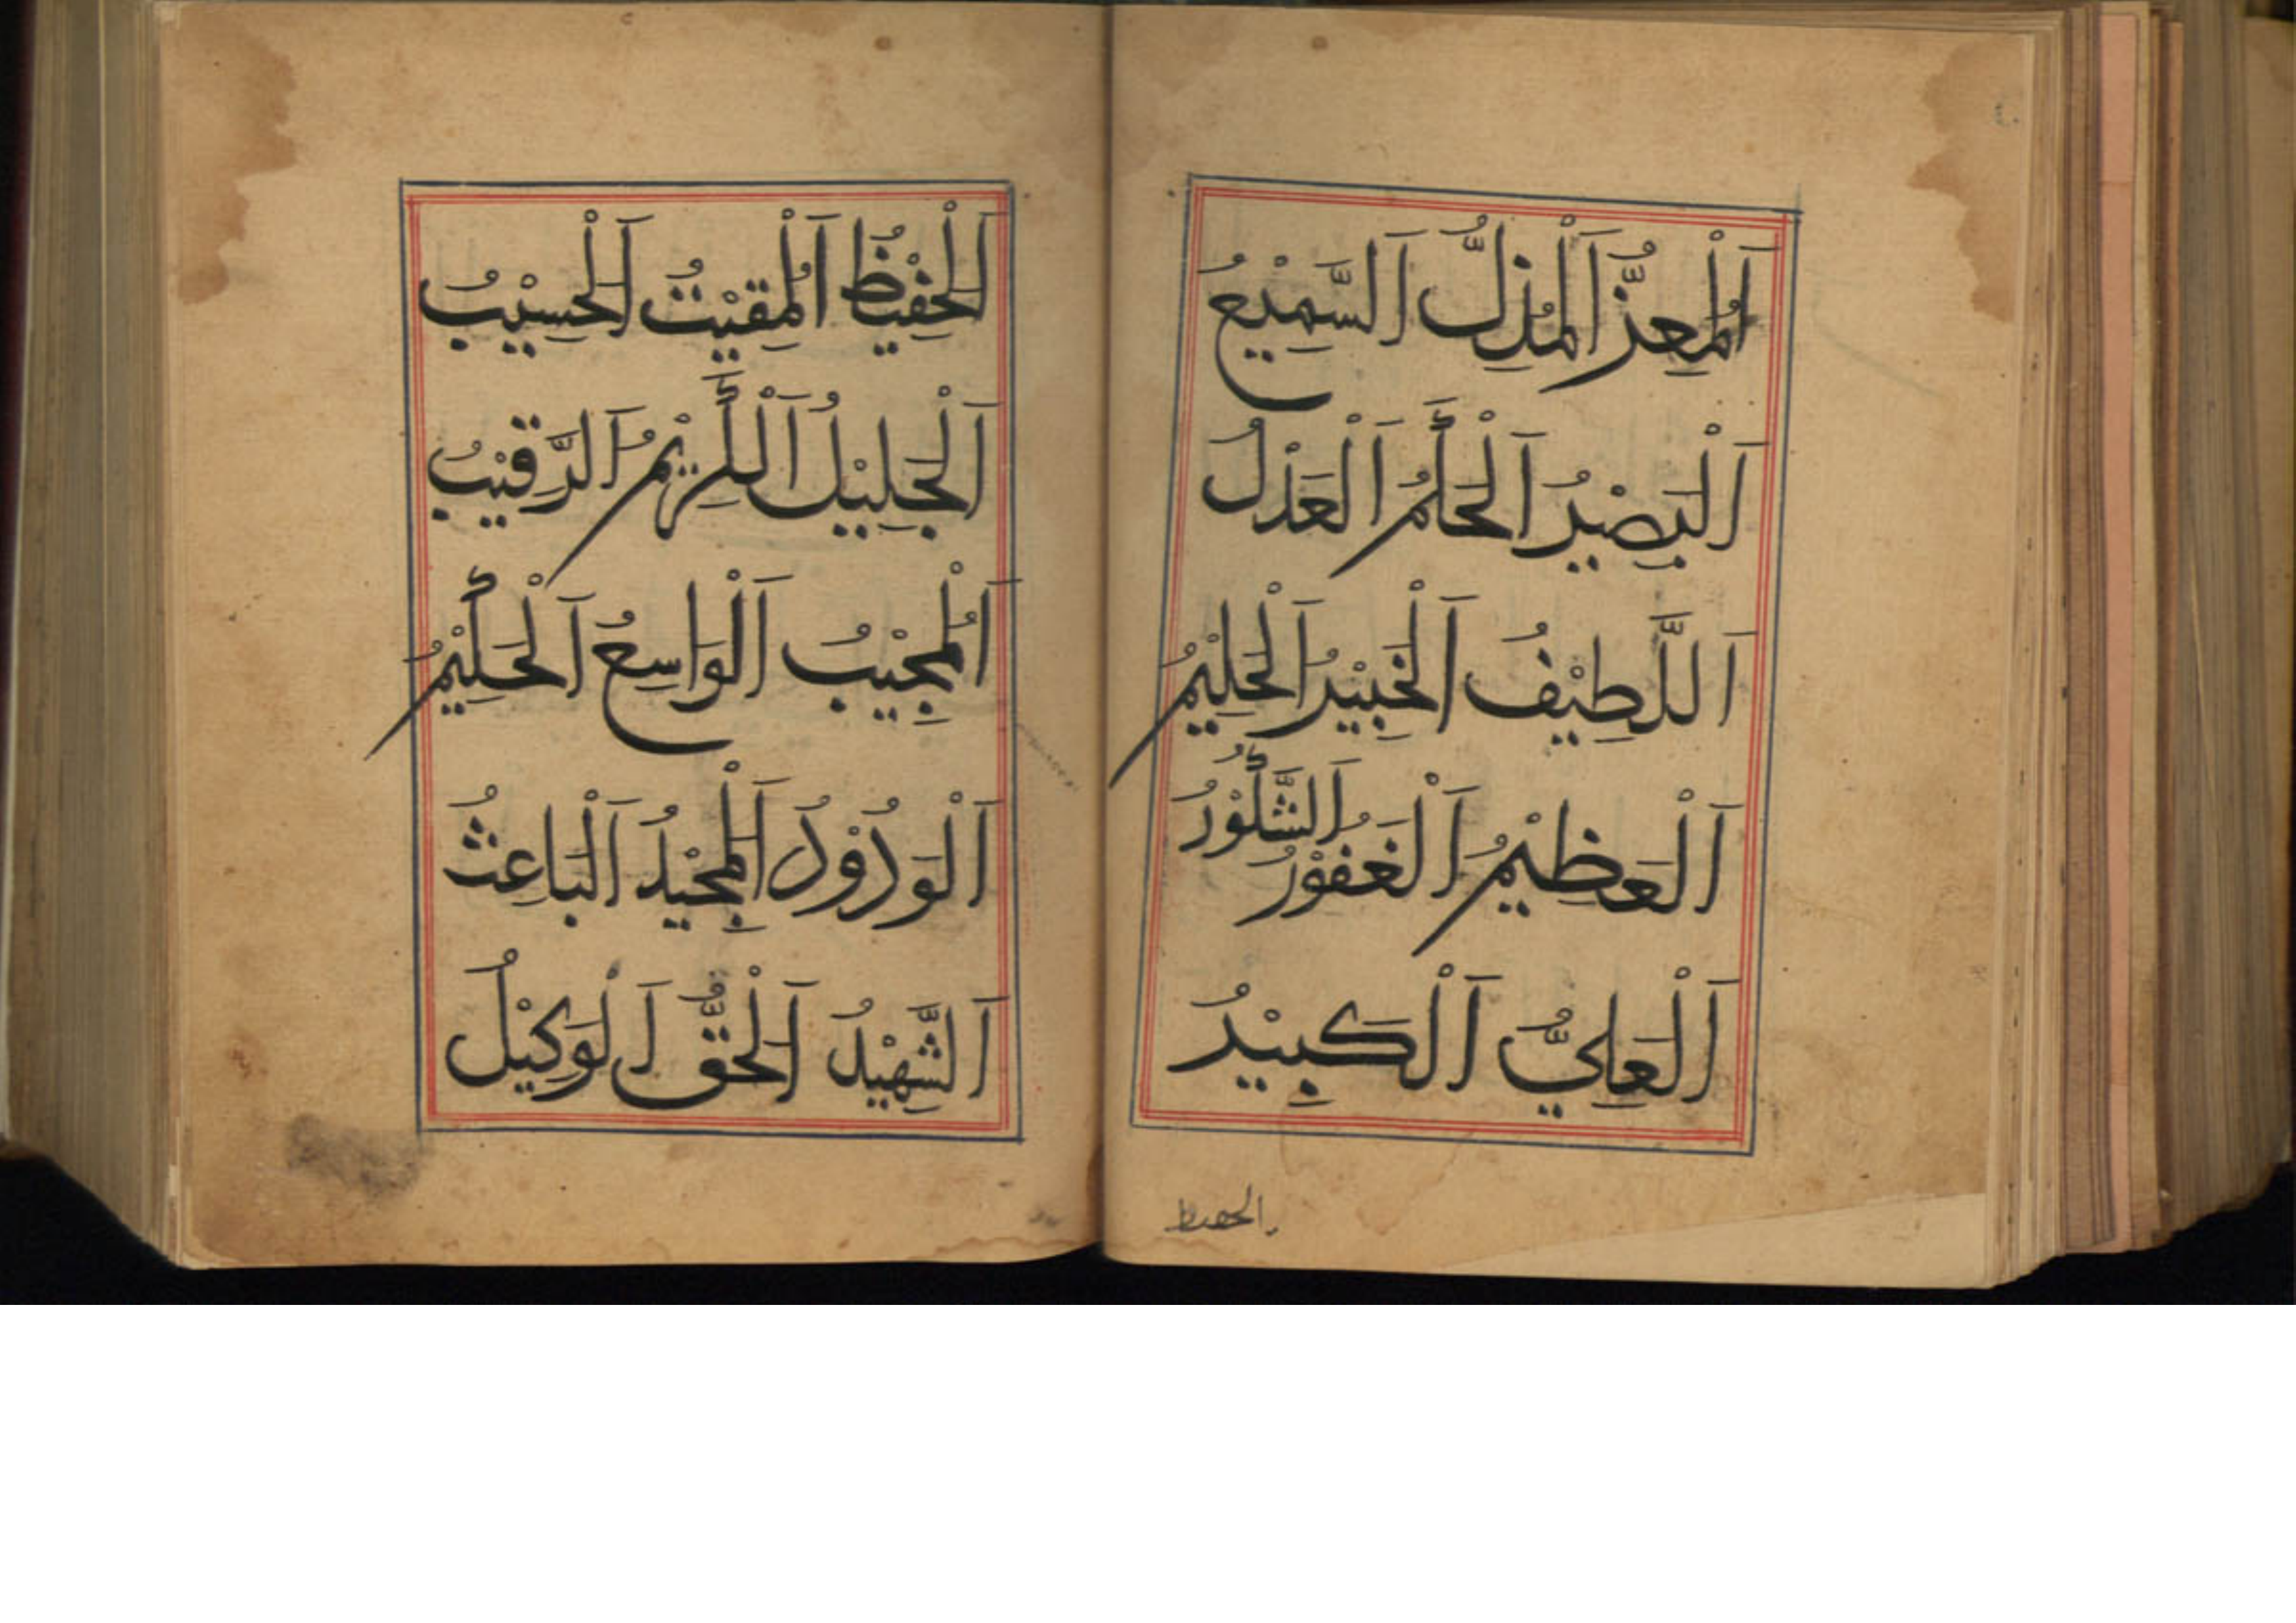 اَلْمُعِزُّ اَلْمُذِلُّ اَلسَّمِيْعُ
اَلْبَصِيْرُ اَلْحَكَمُ اَلْعَدْلُ
اَللَّطِيْفُ اَلْخَبِيْرُ اَلْحَلِيْمُ
اَلْعَظِيْمُ اَلْغَفُوْرُ اَلشَّكُوْرُ
اَلْعَلِيُّ اَلْكَبِيْرُ
الحفيظ
اَلْحَفِيْظُ اَلْمُقِيْتُ اَلْحَسِيْبُ
اَلْجَلِيْلُ اَلْكَرِيْمُ اَلرَّقِيْبُ
اَلْمُجِيْبُ اَلْوَاسِعُ اَلْحَكِيْمُ
اَلْوَدُوْدُ اَلْمَجِيْدُ اَلْبَاعِثُ
اَلشَّهِيْدُ اَلْحَقُّ اَلْوَكِيْلُ